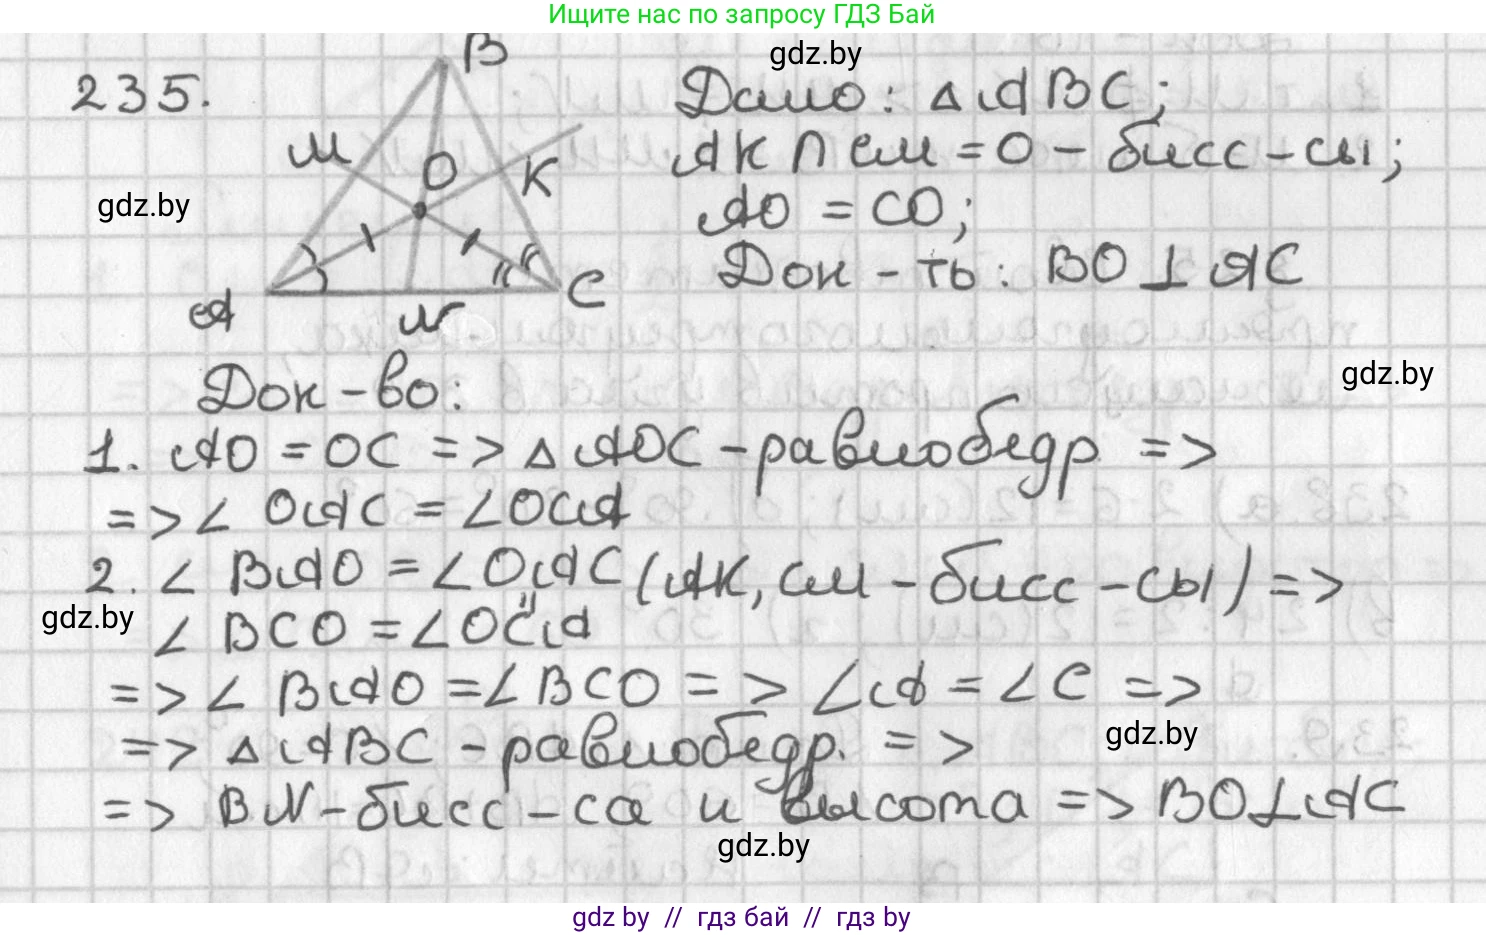 Ищите нас по запросу ГДЗ Бай
gdz.by
235.
B
M
O
K
A
N
C
Дано: △ABC;
AK ∩ CM = O - бисс-сы;
AO = CO;
Док-ть: BO ⊥ AC
gdz.by
gdz.by
Док-во:
1. AO = OC => △AOC - равнобедр =>
=> ∠ OAC = ∠OCA
2. ∠ BAO = ∠OAC (AK, CM - бисс-сы) =>
gdz.by
∠ BCO = ∠OCA
=> ∠ BAO = ∠BCO => ∠A = ∠C =>
=> △ABC - равнобедр. =>
gdz.by
=> BN - бисс-са и высота => BO⊥AC
gdz.by
gdz by // гдз бай // гдз by